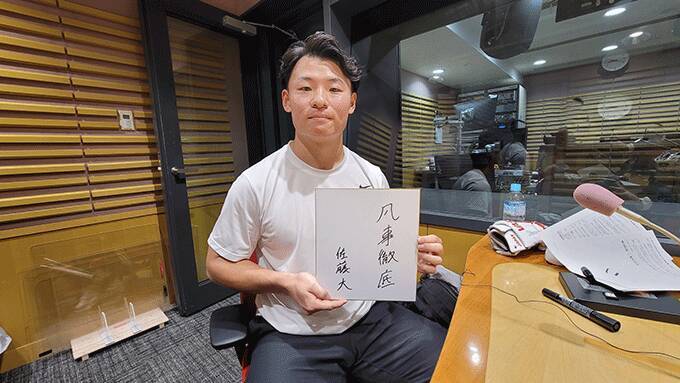 凡事徹底
佐藤 大